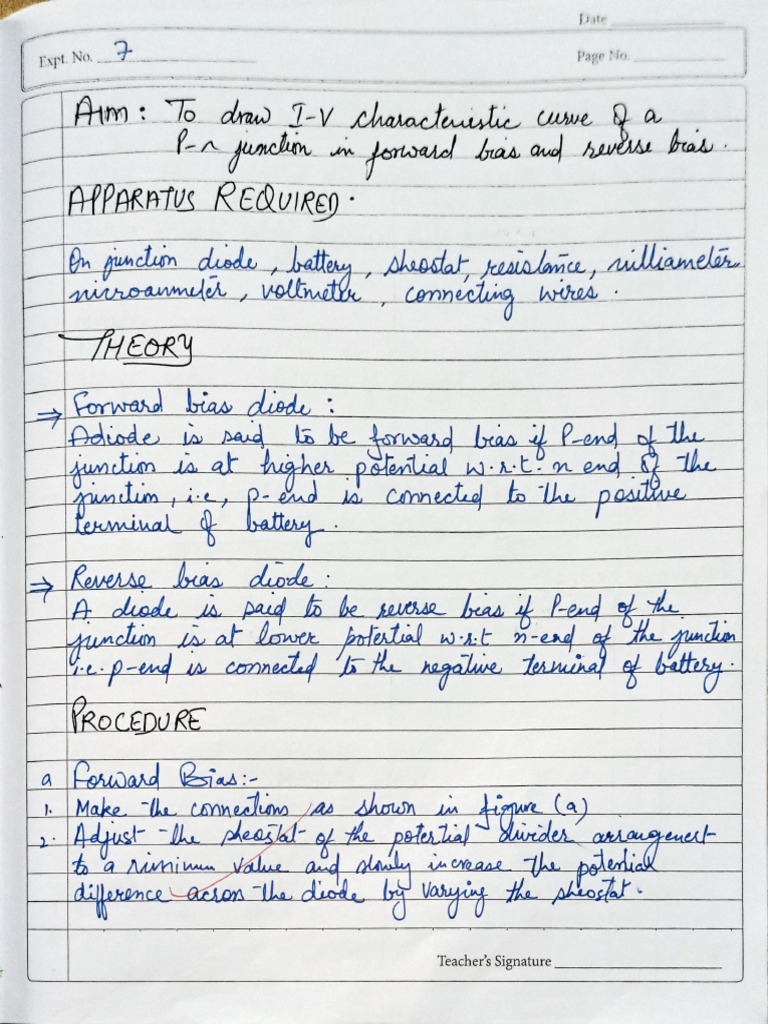 Date
Expt. No. 7
Page No.
Aim : To draw I-V characteristic curve of a
P-n junction in forward bias and reverse bias.
APPARATUS REQUIRED.
On junction diode, battery, rheostat, resistance, milliameter
microammeter, voltmeter, connecting wires.
THEORY
⇒ Forward bias diode :
A diode is said to be forward bias if P-end of the
junction is at higher potential w.r.t. n end of the
junction, i.e, p-end is connected to the positive
terminal of battery.
⇒ Reverse bias diode :
A diode is said to be reverse bias if P-end of the
junction is at lower potential w.r.t n-end of the junction
i.e. p-end is connected to the negative terminal of battery.
PROCEDURE
a Forward Bias:-
1. Make the connections as shown in figure (a)
2. Adjust the rheostat of the potential divider arrangement
to a minimum value and slowly increase the potential
difference across the diode by varying the rheostat.
Teacher's Signature